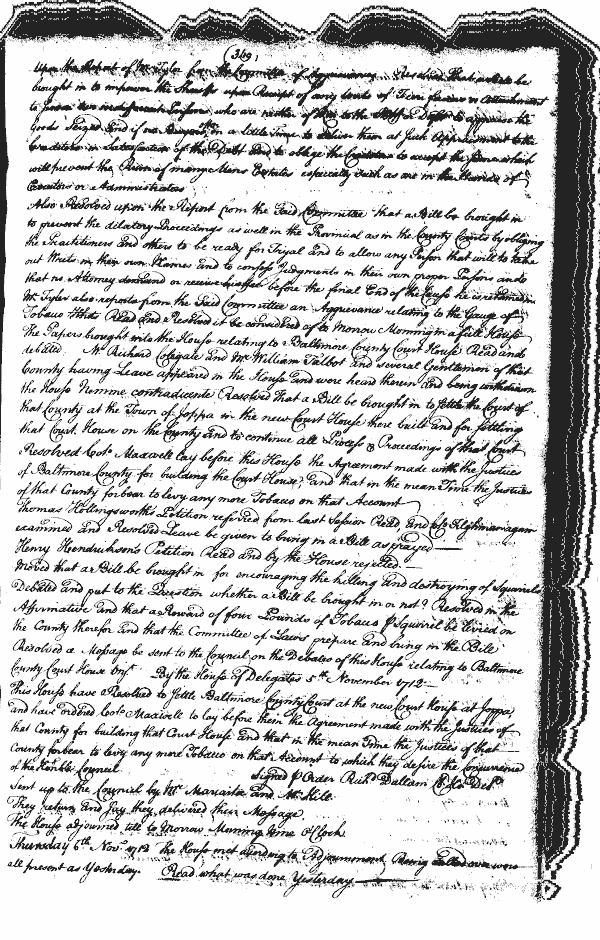 (349)
Upon the Report of Mr. Tyler from the Committee of Aggrievances Resolved That a Bill be
brought in to impower the Sheriffs upon Receipt of any writs of Fieri facias or Attachment
to two indifferent Persons who are neither of them to the Debt to appraise the
Goods Seized And if no in a little Time to deliver them at Such Appraisement to the
Creditors in Satisfaction of the Debt And to oblige the Creditors to accept the same which
will prevent the Ruin of many Mens Estates especially Such as are in the Hands of
Executors or Administrators
Also Resolved upon the Report from the Said Committee that a Bill be brought in
to prevent the dilatory Proceedings as well in the Provincial as in the County Courts by obliging
the Practitioners and others to be ready for Tryal and to allow any Person that will to take
out Writs in their own Names and to confess Judgments in their own proper Persons and
that no Attorney demand or receive before the final End of the Cause he is retained in
Mr. Tyler also reports from the Said Committee an Aggrievance relating to the Gauge of
Tobacco Hhds Read And Resolved it be considered of to Morrow Morning in a full House
The Papers brought into the House relating to a Baltimore County Court House Read and
debated. Mr. Richard Colegate and Mr. William Talbot and several Gentlemen of that
County having Leave appeared in the House and were heard therein and being withdrawn
the House Nemine contradicente Resolved That a Bill be brought in to Settle the Court of
that County at the Town of Joppa in the new Court House there built and for settling
that Court House on the County and to continue all Process & Proceedings of that Court
Resolved Colo. Maxwell lay before this House the Agreement made with the Justices
of Baltimore County for building the Court House, and that in the mean Time the Justices
of that County forbear to levy any more Tobacco on that Account
Thomas Hollingsworth's Petition referred from last Session Read, and again
examined and Resolved Leave be given to bring in a Bill as prayed
Henry Hendrickson's Petition Read and by the House rejected
Moved that a Bill be brought in for encouraging the killing and destroying of Squirrels
Debated and put to the Question whether a Bill be brought in or not? Resolved in the
Affirmative And that a Reward of four Pounds of Tobacco ⅌ Squirrel be levied on
the County therefor and that the Committee of Laws prepare and bring in the Bill
Resolved a Message be sent to the Council on the Debates of this House relating to Baltimore
County Court House Vizt. By the House of Delegates 5th November 1712
This House have Resolved to Settle Baltimore County Court at the new Court House at Joppa
and have ordered Colo. Maxwell to lay before them the Agreement made with the Justices of
that County for building that Court House and that in the mean time the Justices of that
County forbear to levy any more Tobacco on that Account to which they desire the Concurrence
of the Honble. Council Signed ⅌ Order Richd. Dallam Cl. Ho. Del.
Sent up to the Council by Mr. Mariarte and Mr. Hill
They return and Say they delivered their Message.
The House adjourned till to Morrow Morning Nine o'Clock
Thursday 6th Novr. 1712 The House met according to Adjournment, Being called over were
all present as Yesterday. Read what was done Yesterday